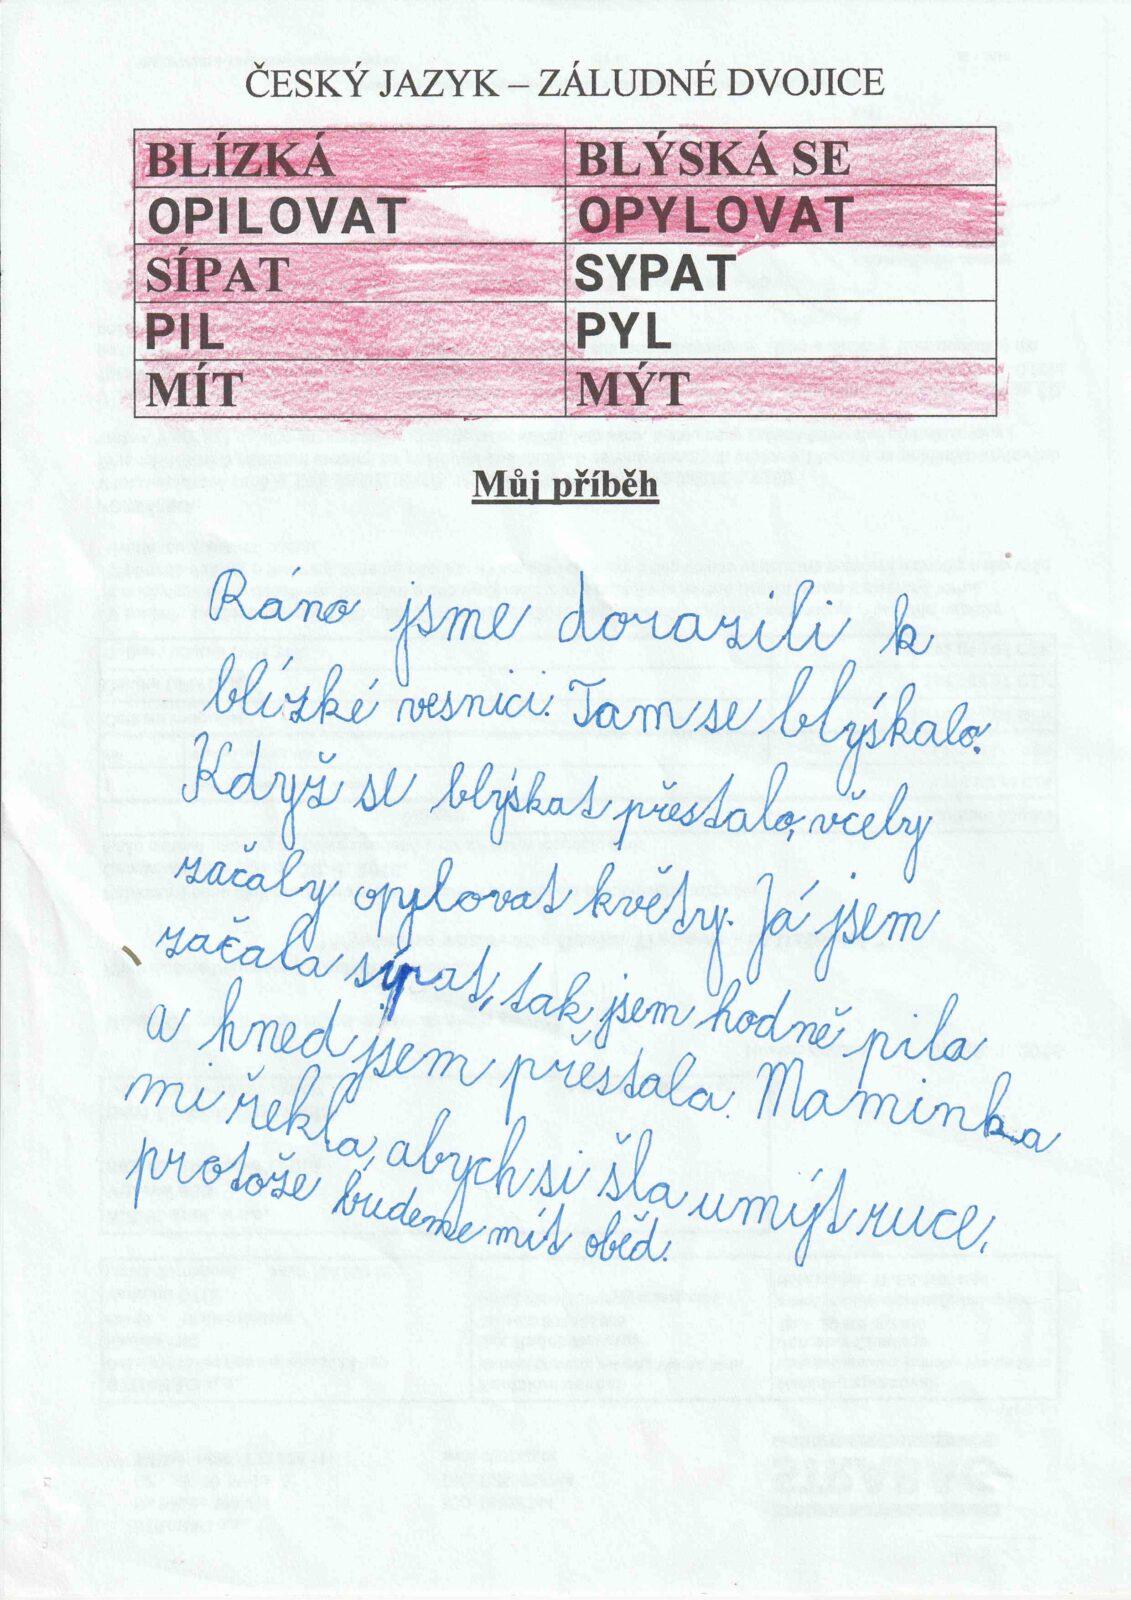 ČESKÝ JAZYK – ZÁLUDNÉ DVOJICE
BLÍZKÁ BLÝSKÁ SE
OPILOVAT OPYLOVAT
SÍPAT SYPAT
PIL PYL
MÍT MÝT
Můj příběh
Ráno jsme dorazili k
blízké vesnici. Tam se blýskalo.
Když se blýskat přestalo, včely
začaly opylovat květy. Já jsem
začala sípat, tak jsem hodně pila
a hned jsem přestala. Maminka
mi řekla, abych si šla umýt ruce,
protože budeme mít oběd.